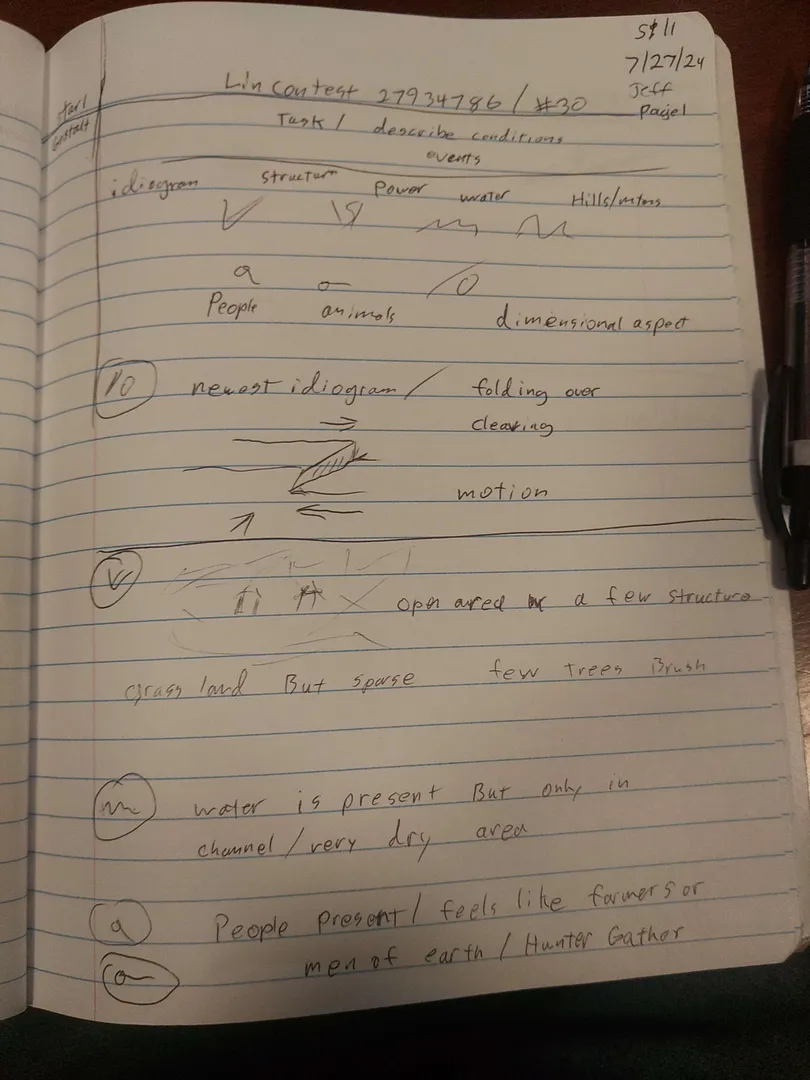 7/27/24
Jeff
Pagel
Lin contest 27934786 / #30
start
Gestalt
Task / describe conditions
events
idiogram structure Power water Hills/mtns
People animals dimensional aspect
newest idiogram / folding over
cleaving
motion
open area a few structure
Grass land But sparse few trees Brush
water is present But only in
channel / very dry area
People present / feels like farmers or
men of earth / Hunter Gather